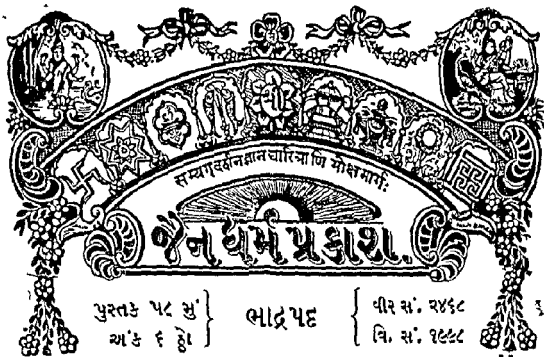 सम्यग्दर्शनज्ञानचारित्राणि मोक्षमार्गः
જૈન ધર્મ પ્રકાશ.
પુસ્તક ૫૮ મું
અંક ૬ ઠ્ઠો
ભાદ્રપદ
વીર સં. ૨૪૬૮
વિ. સં. ૧૯૯૮